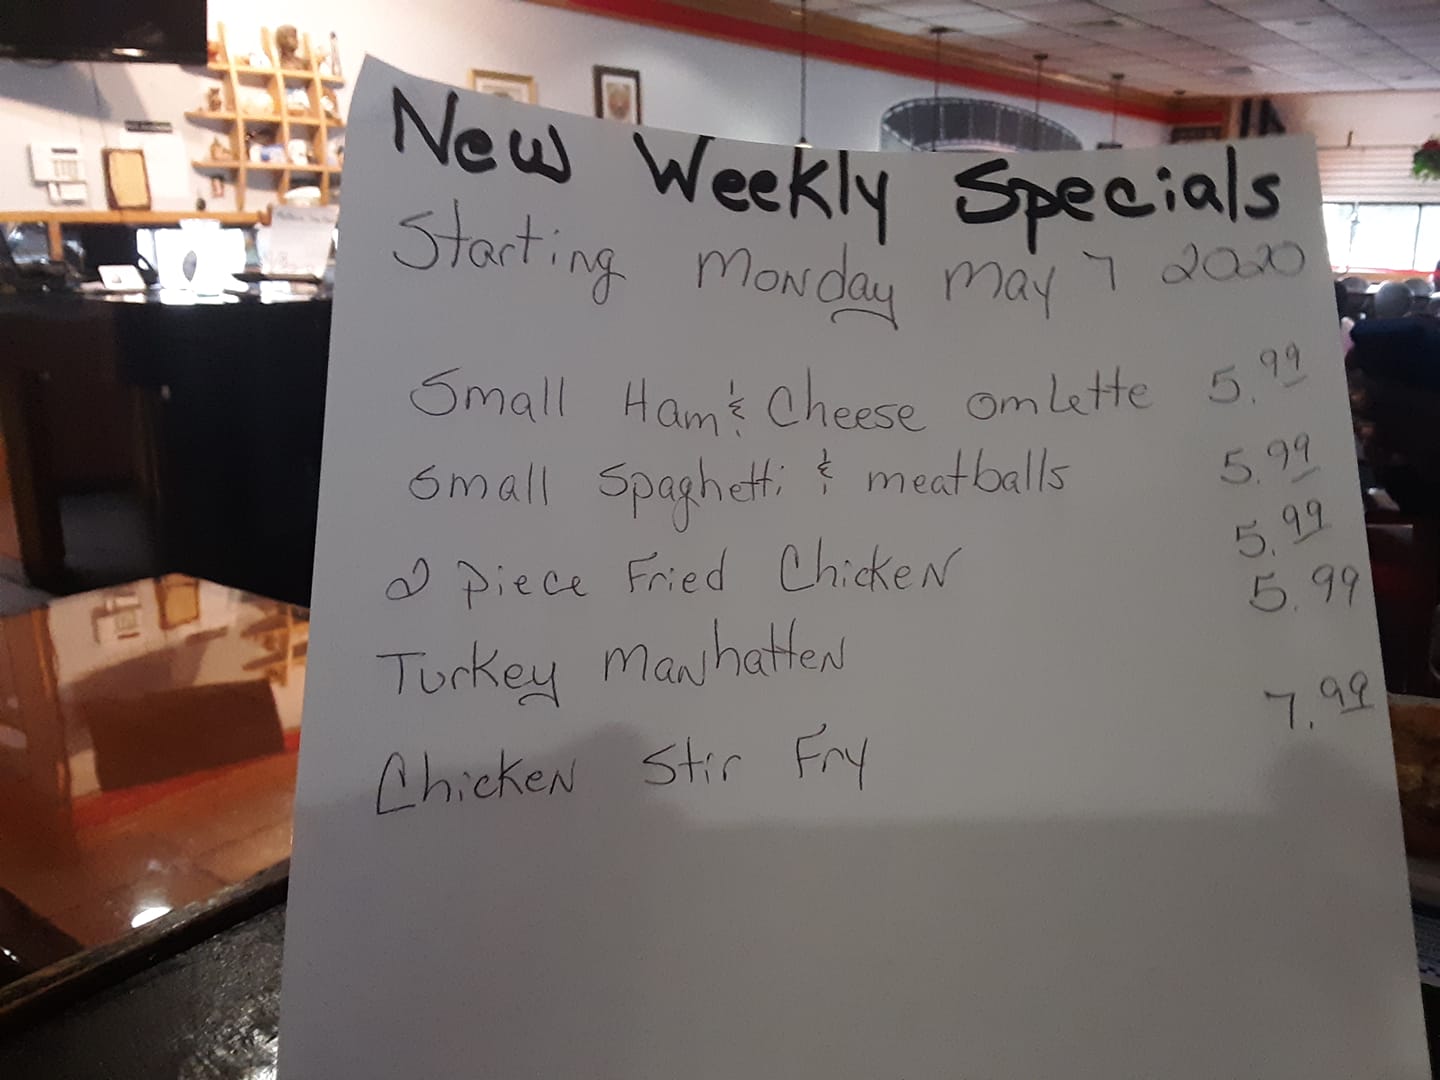 New Weekly Specials
Starting Monday May 7 2020
Small Ham & Cheese omlette 5.99
Small Spaghetti & meatballs 5.99
2 Piece Fried Chicken 5.99
Turkey Manhatten 5.99
Chicken Stir Fry 7.99